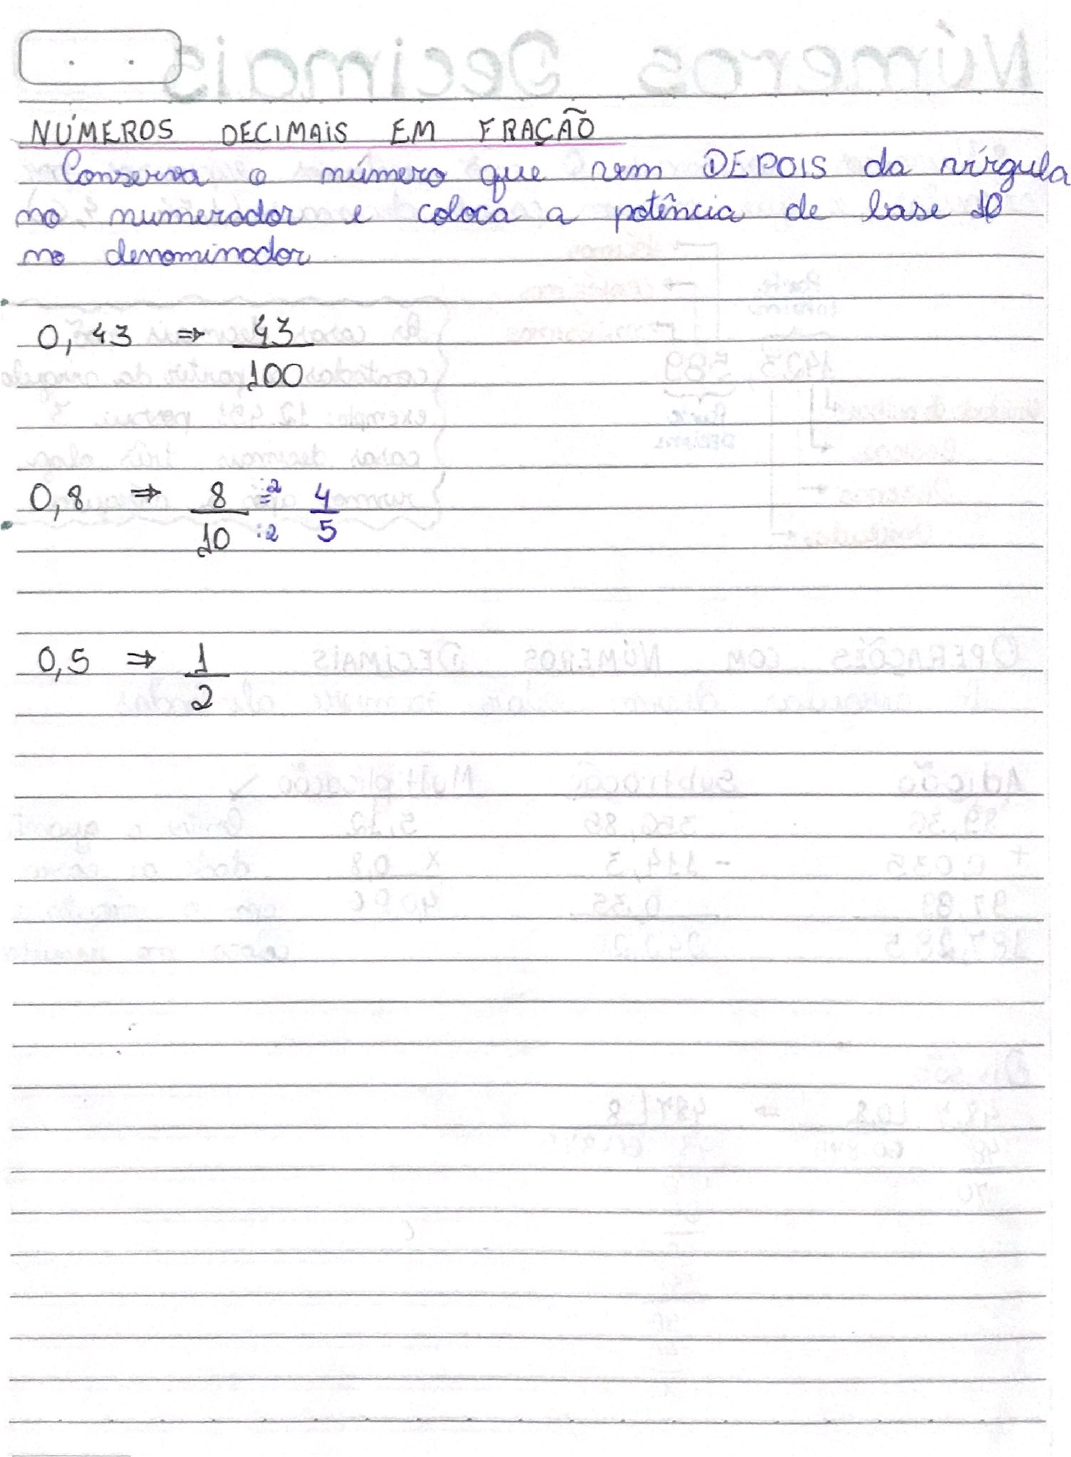 NÚMEROS DECIMAIS EM FRAÇÃO
Conserva o número que vem DEPOIS da vírgula
no numerador e coloca a potência de base 10
no denominador
0,43 ⇒ 43
100
0,8 ⇒ 8 :2 4
10 :2 5
0,5 ⇒ 1
2